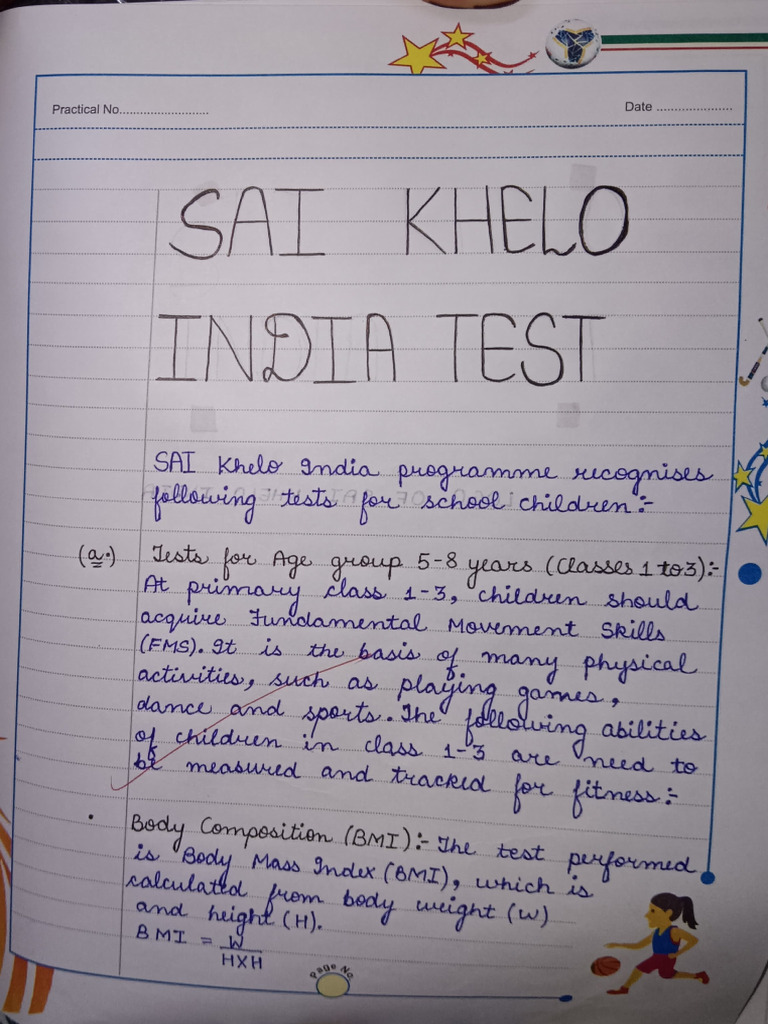 Practical No.........................
Date .....................
SAI KHELO
INDIA TEST
SAI Khelo India programme recognises
following tests for school children:-
(a.) Tests for Age group 5-8 years (Classes 1 to 3):-
At primary class 1-3, children should
acquire Fundamental Movement Skills
(FMS). It is the basis of many physical
activities, such as playing games,
dance and sports. The following abilities
of children in class 1-3 are need to
be measured and tracked for fitness:-
• Body Composition (BMI):- The test performed
is Body Mass Index (BMI), which is
calculated from body weight (W)
and height (H).
BMI = W
H×H
Page No.